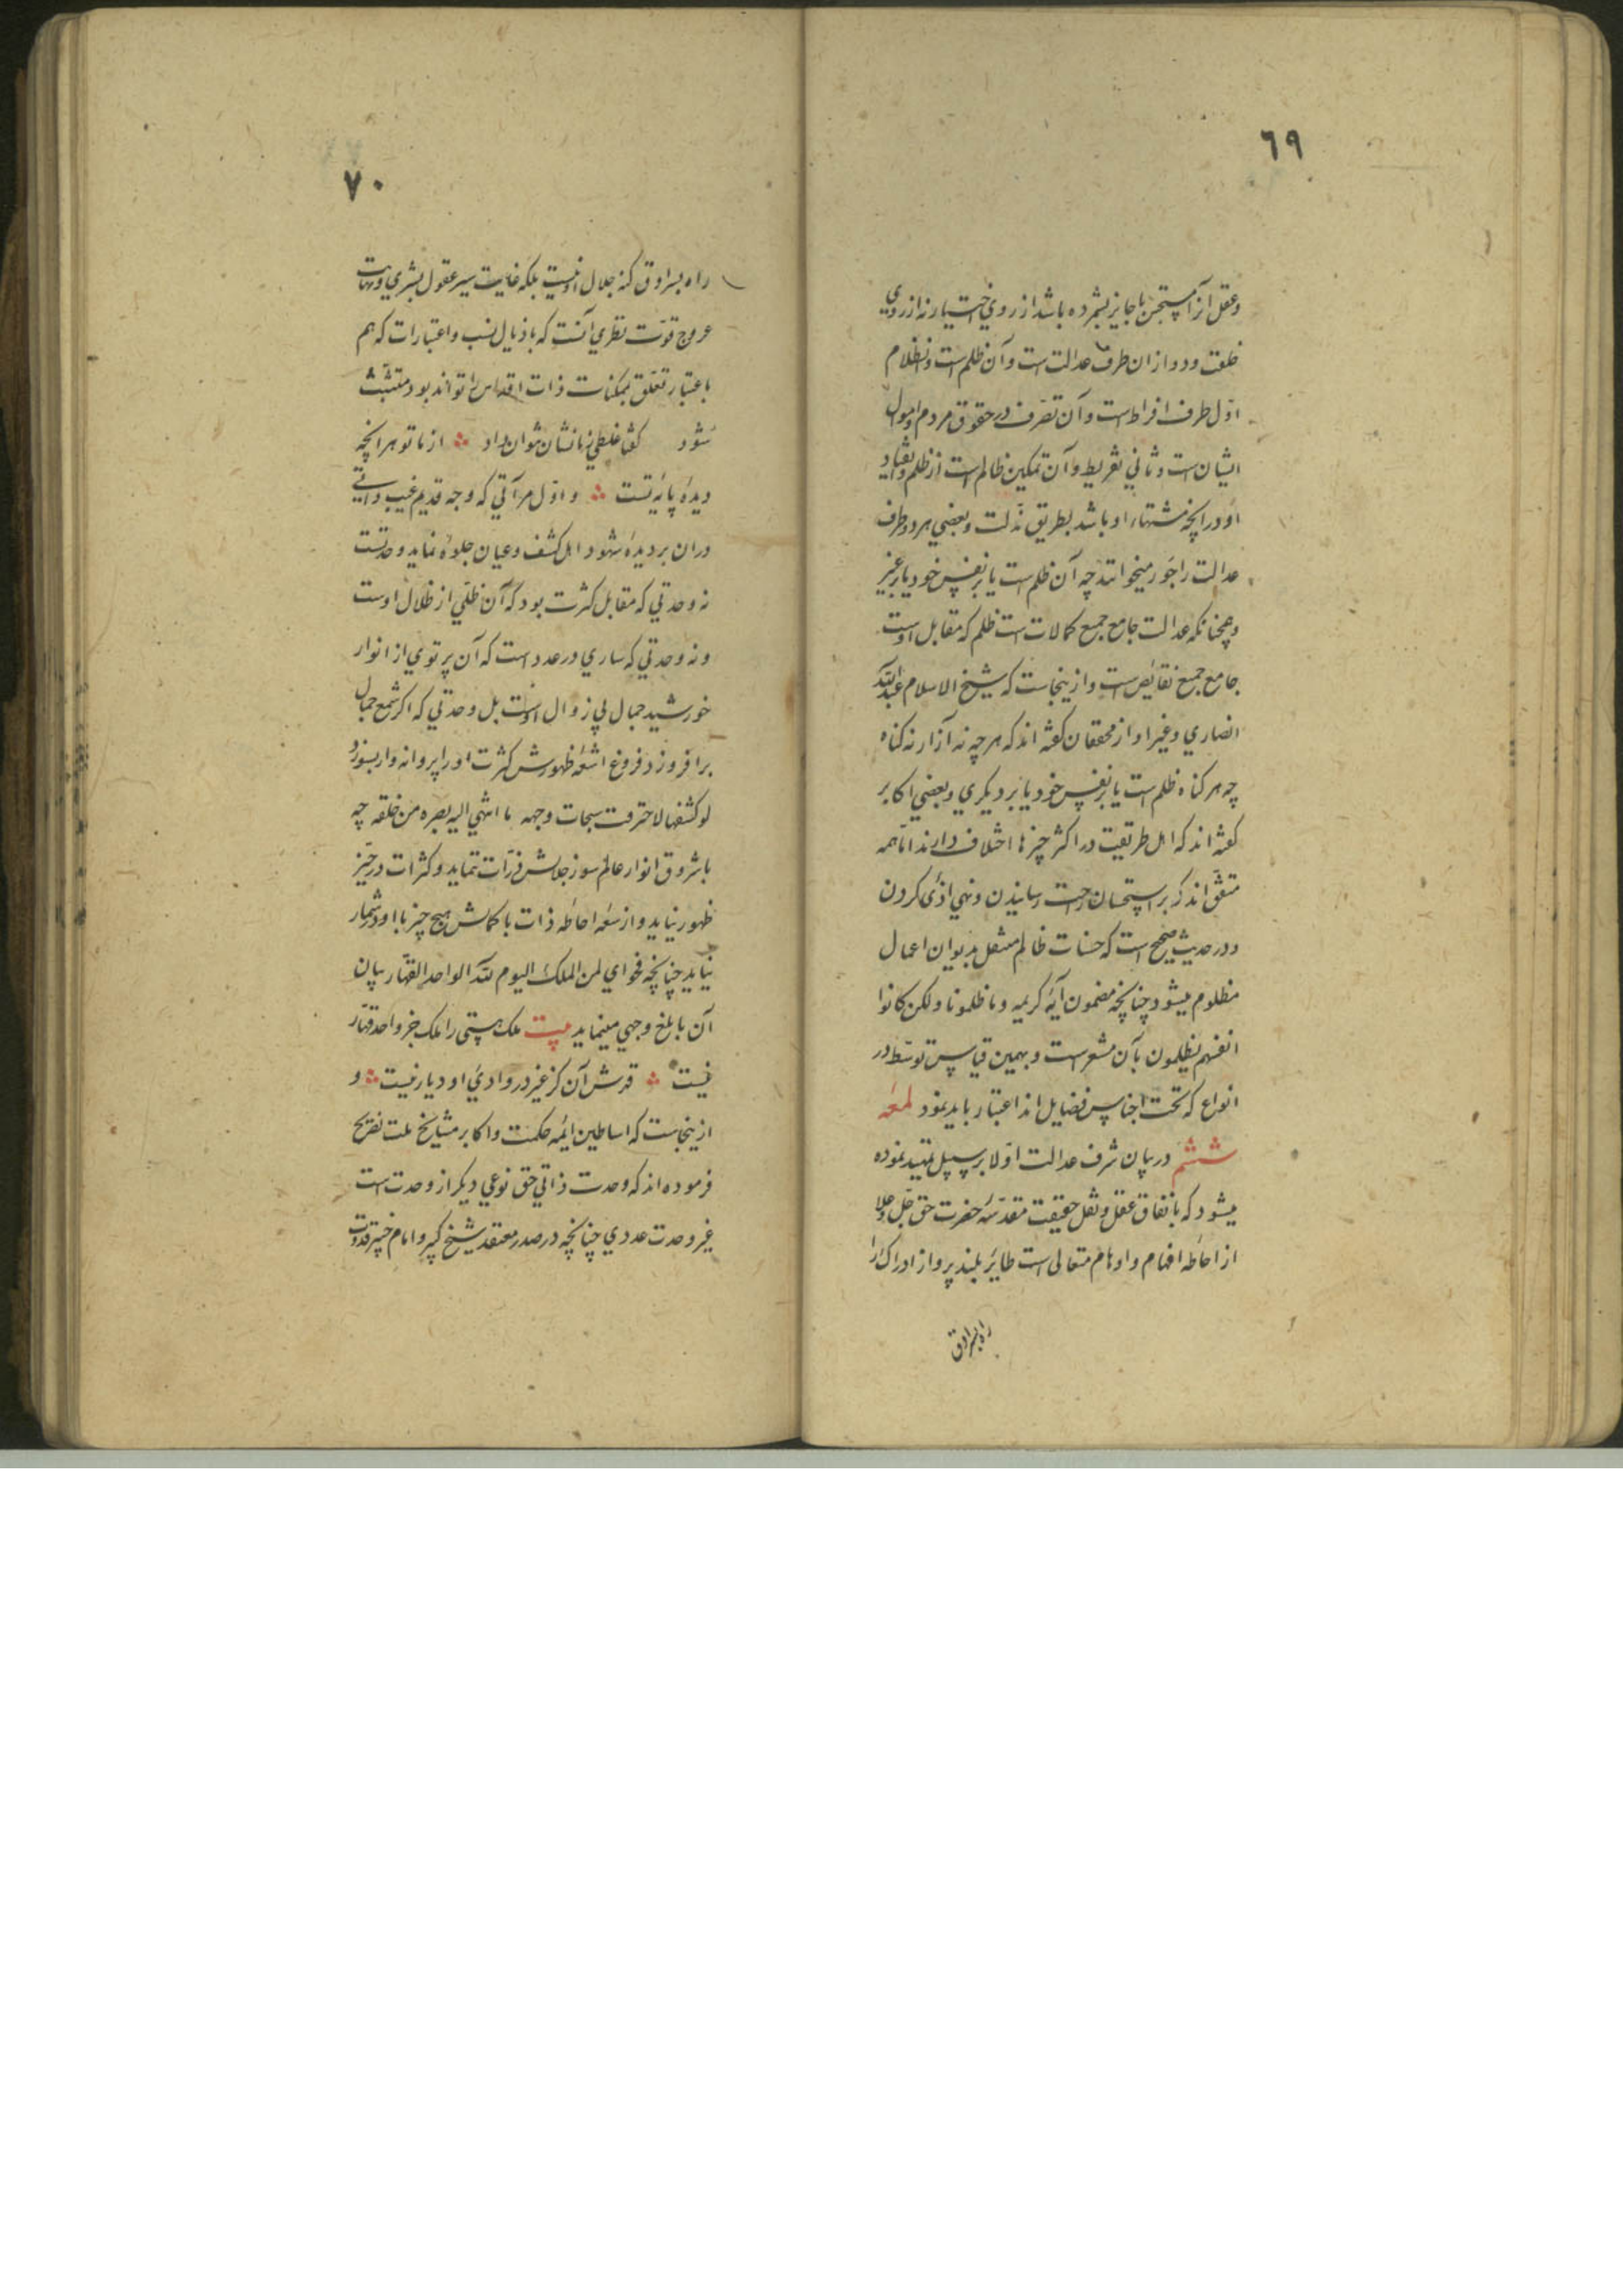 ٦٩
وعقل آنرا مستحسن یا جایز شمرده باشد از روي اختیار نه از روي
خلقت ودوازان طرف عدالت است وآن ظلم است وانظلام
اوّل طرف افراط است وآن تصّرف در حقوق مردم واموال
ایشان است وثاني تفریط وآن تمکین ظالم است از ظلم وانقیاد
او در انچه مشتهاء او باشد بطریق مذّلت وبعضي هر دو طرف
عدالت را جور میخوانند چه آن ظلم است یا بر نفس خود یا بر غیر
وهمچنانکه عدالت جامع جمیع کمالات است ظلم که مقابل اوست
جامع جمیع نقایص است وازینجاست که شیخ الاسلام عبدالله
انصاري وغیر او از محققان گفته اند که هر چه نه آزار نه کناه
چه هر کناه ظلم است یا بر نفس خود یا بر دیکري وبعضي اکابر
کفته اند که اهل طریقت در اکثر چیزها اختلاف دارند امّا همه
متفّق اند که بر استحسان راحت رسانیدن ونهي اذی کردن
ودر حدیث صحیح است که حسنات ظالم منتقل بدیوان اعمال
مظلوم میشود چنانچه مضمون آیهٔ کریمه وما ظلمونا ولکن کانوا
انفسهم یظلمون بآن مشعر است وبهمین قیاس توسّط در
انواع که تحت اجناس فضایل اند اعتبار باید نمود لمعهٔ
ششم در بیان شرف عدالت اوّلا بر سبیل تمهید نموده
میشود که باتفاق عقل ونقل حقیقت مقدّسهٔ حضرت حق جّل وعلا
از احاطه افهام واوهام متعالی است طایر بلند پرواز ادراک را
راه بسرادق
٧٠
راه بسرادق کنه جلال او نیست بلکه غایت سیر عقول بشري ونهایت
عروج قوّت نظري آنست که باذیال نسب واعتبارات که هم
باعتبار تعّلق بممکنات ذات اقدس را تواند بود متشّبث
شود کفتا غلطي زما نشان نتوان داد ۞ از ما تو هر انچه
دیدهٔ پایهٔ تست ۞ واوّل مرآتي که وجه قدیم غیب ذاتي
دران بر دیدهٔ شهود اهل کشف وعیان جلوهٔ نماید وحدتست
نه وحدتي که مقابل کثرت بود که آن ظلّي از ظلال اوست
ونه وحدتي که ساري در عدد است که آن پرتوي از انوار
خورشید جمال بي زوال اوست بل وحدتي که اکر شمع جمال
بر افروزد فروغ اشعّهٔ ظهورش کثرت او را پروانه وار بسوزد
لو کشفها لاحترقت سبحات وجهه ما انتهي الیه بصره من خلقه چه
با شروق انوار عالم سوز جلالش ذرّات ننماید وکثرات در حیّز
ظهور نیاید واز سعهٔ احاطهٔ ذات با کمالش هیچ چیز با او در شمار
نیاید چنانچه فحواي لمن الملک الیوم لله الواحد القهّار بیان
آن بابلغ وجهي مینماید بیت ملک هستي را ملک جز واحد قهّار
نیست ۞ قدرش آن کز غیر در وادئ او دیار نیست ۞ و
ازینجاست که اساطین ائمهٔ حکمت واکابر مشایخ ملت تصریح
فرموده اند که وحدت ذاتي حق نوعي دیکر از وحدت است
غیر وحدت عددي چنانچه در صدر معتقد شیخ کبیر وامام خبیر قدوت